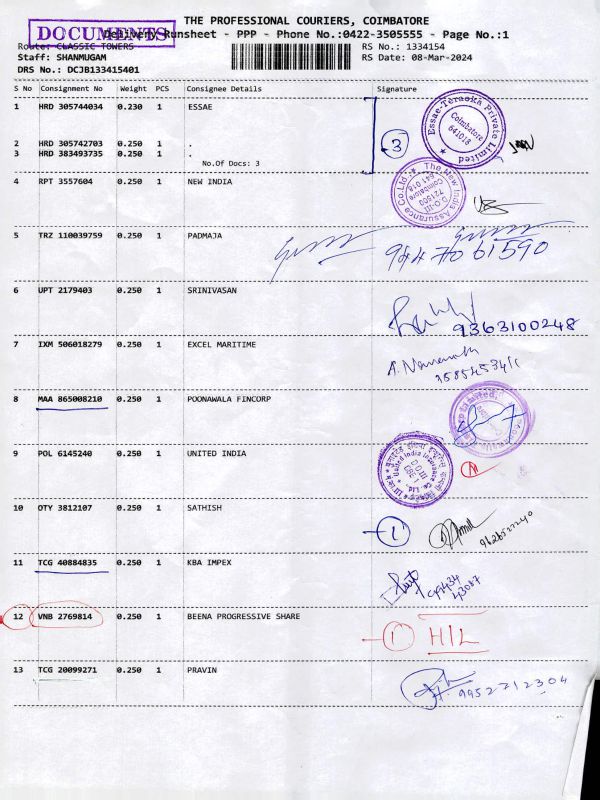 THE PROFESSIONAL COURIERS, COIMBATORE
DOCUMENTS
Delivery Runsheet - PPP - Phone No.:0422-3505555 - Page No.:1
Route: CLASSIC TOWERS RS No.: 1334154
Staff: SHANMUGAM RS Date: 08-Mar-2024
DRS No.: DCJB133415401
S No Consignment No Weight PCS Consignee Details Signature
1 HRD 305744034 0.230 1 ESSAE
Essae-Teraoka Private Limited
Coimbatore
641018
2 HRD 305742703 0.250 1 .
3 HRD 383493735 0.250 1 .
3
No.Of Docs: 3
4 RPT 3557604 0.250 1 NEW INDIA
The New India Assurance Co.Ltd.
D.O.III
721500
Coimbatore
641 018
5 TRZ 110039759 0.250 1 PADMAJA
6 UPT 2179403 0.250 1 SRINIVASAN
9363100248
7 IXM 506018279 0.250 1 EXCEL MARITIME
8 MAA 865008210 0.250 1 POONAWALA FINCORP
9 POL 6145240 0.250 1 UNITED INDIA
United India Insurance Co. Ltd.
10 OTY 3812107 0.250 1 SATHISH
1
11 TCG 40884835 0.250 1 KBA IMPEX
12 VNB 2769814 0.250 1 BEENA PROGRESSIVE SHARE
1 H/L
13 TCG 20099271 0.250 1 PRAVIN
9952712304